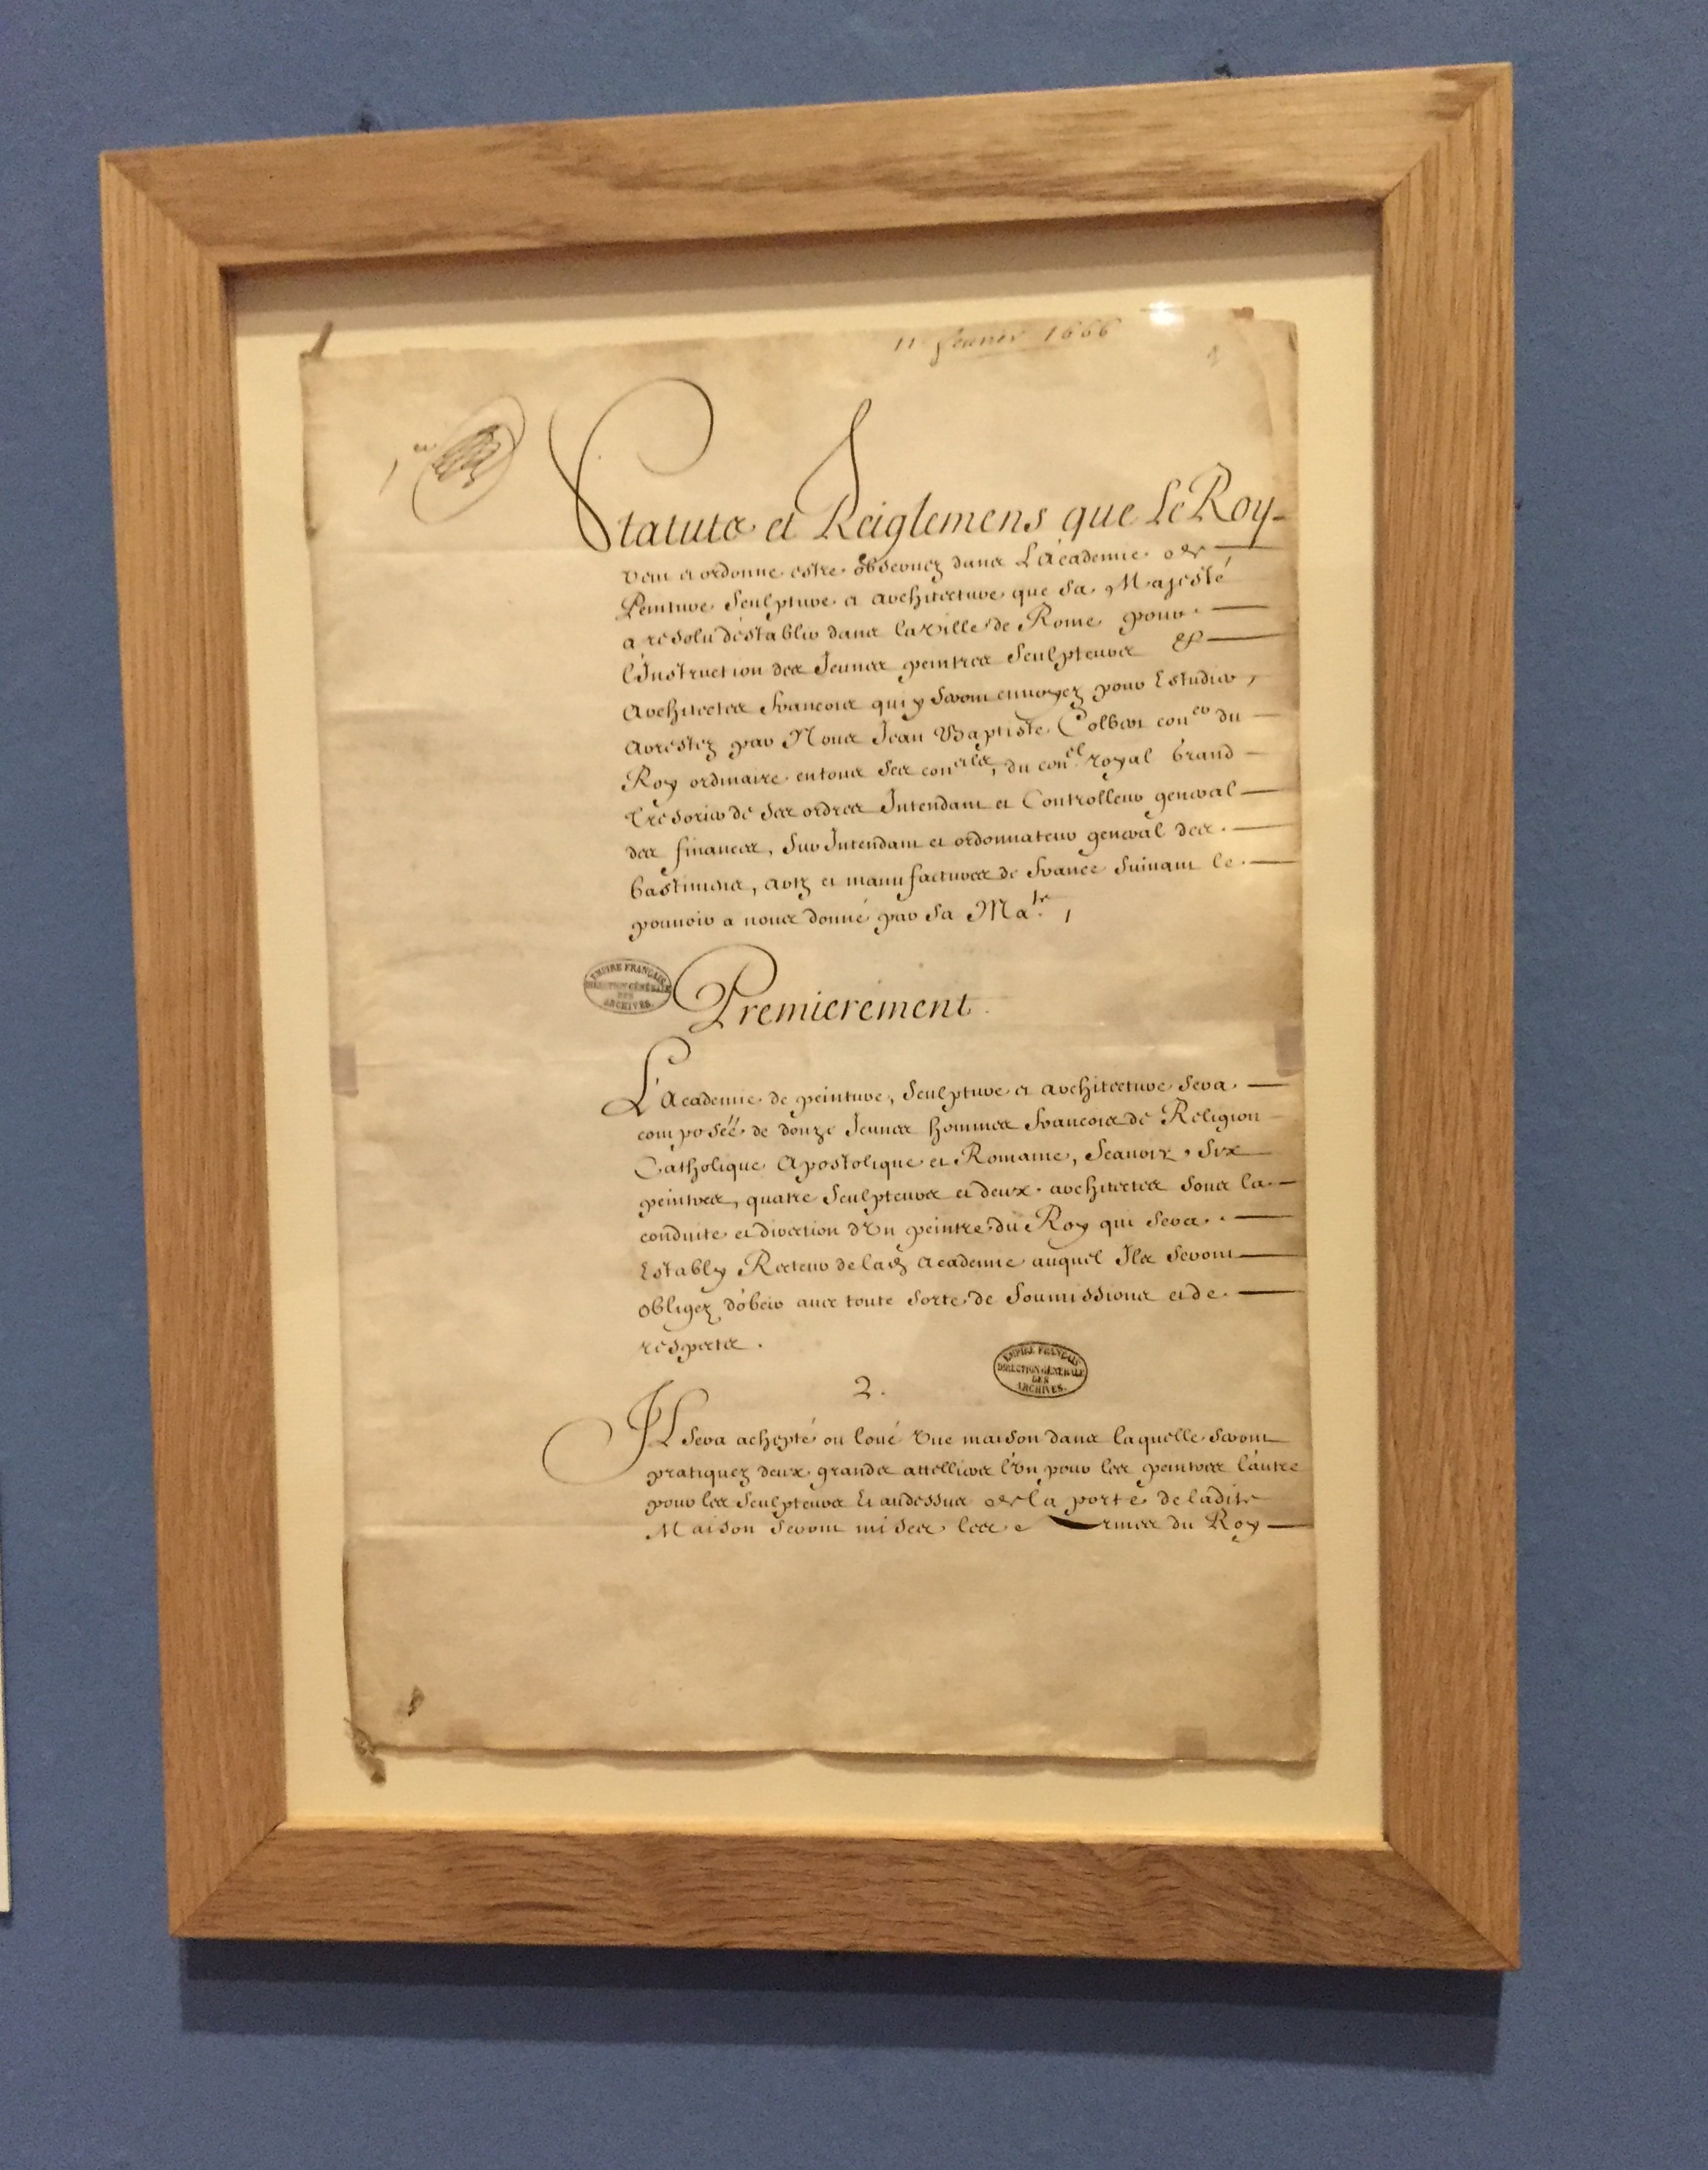 11 feurier 1666
1er
Statuts et Reiglemens que le Roy
veut et ordonne estre obseruez dans L'Academie de
Peinture Sculpture et architecture que Sa Majesté
a resolu d'establir dans la Ville de Rome pour
l'Instruction des Jeunes peintres Sculpteurs &
Architectes francois qui y seront enuoyez pour Estudier,
arrestez par Nous Jean Baptiste Colbert con.er du
Roy ordinaire en tous ses con.eils, du con.el royal Grand
Tresorier de ses ordres Intendant et Controlleur general
des finances, Sur Intendant et ordonnateur general des
bastimens, arts et manufactures de france suiuant le
pouuoir a nous donné par sa Ma.te,
EMPIRE FRANÇAIS
DIRECTION GÉNÉRALE
DES
ARCHIVES.
Premierement.
L'Academie de peinture, Sculpture et architecture sera
composéé de douze Jeunes hommes francois de Religion
Catholique Apostolique et Romaine, Scauoir, Six
peintres, quatre Sculpteurs et deux architectes sous la
conduite et direction d'Vn peintre du Roy qui sera
Estably Recteur de lad. Academie auquel Ils seront
obligez d'obeir auec toute sorte de soumissions et de
respects.
EMPIRE FRANÇAIS
DIRECTION GÉNÉRALE
DES
ARCHIVES.
2.
IL sera achepté ou loué Vne maison dans laquelle seront
pratiquez deux grands attelliers l'Vn pour les peintres l'autre
pour les Sculpteurs Et audessus de la porte de ladite
Maison seront mises les armes du Roy